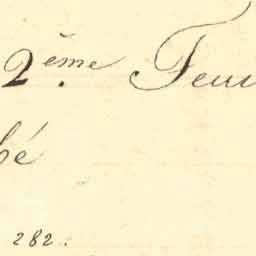 2.ème Feui
bé
282.